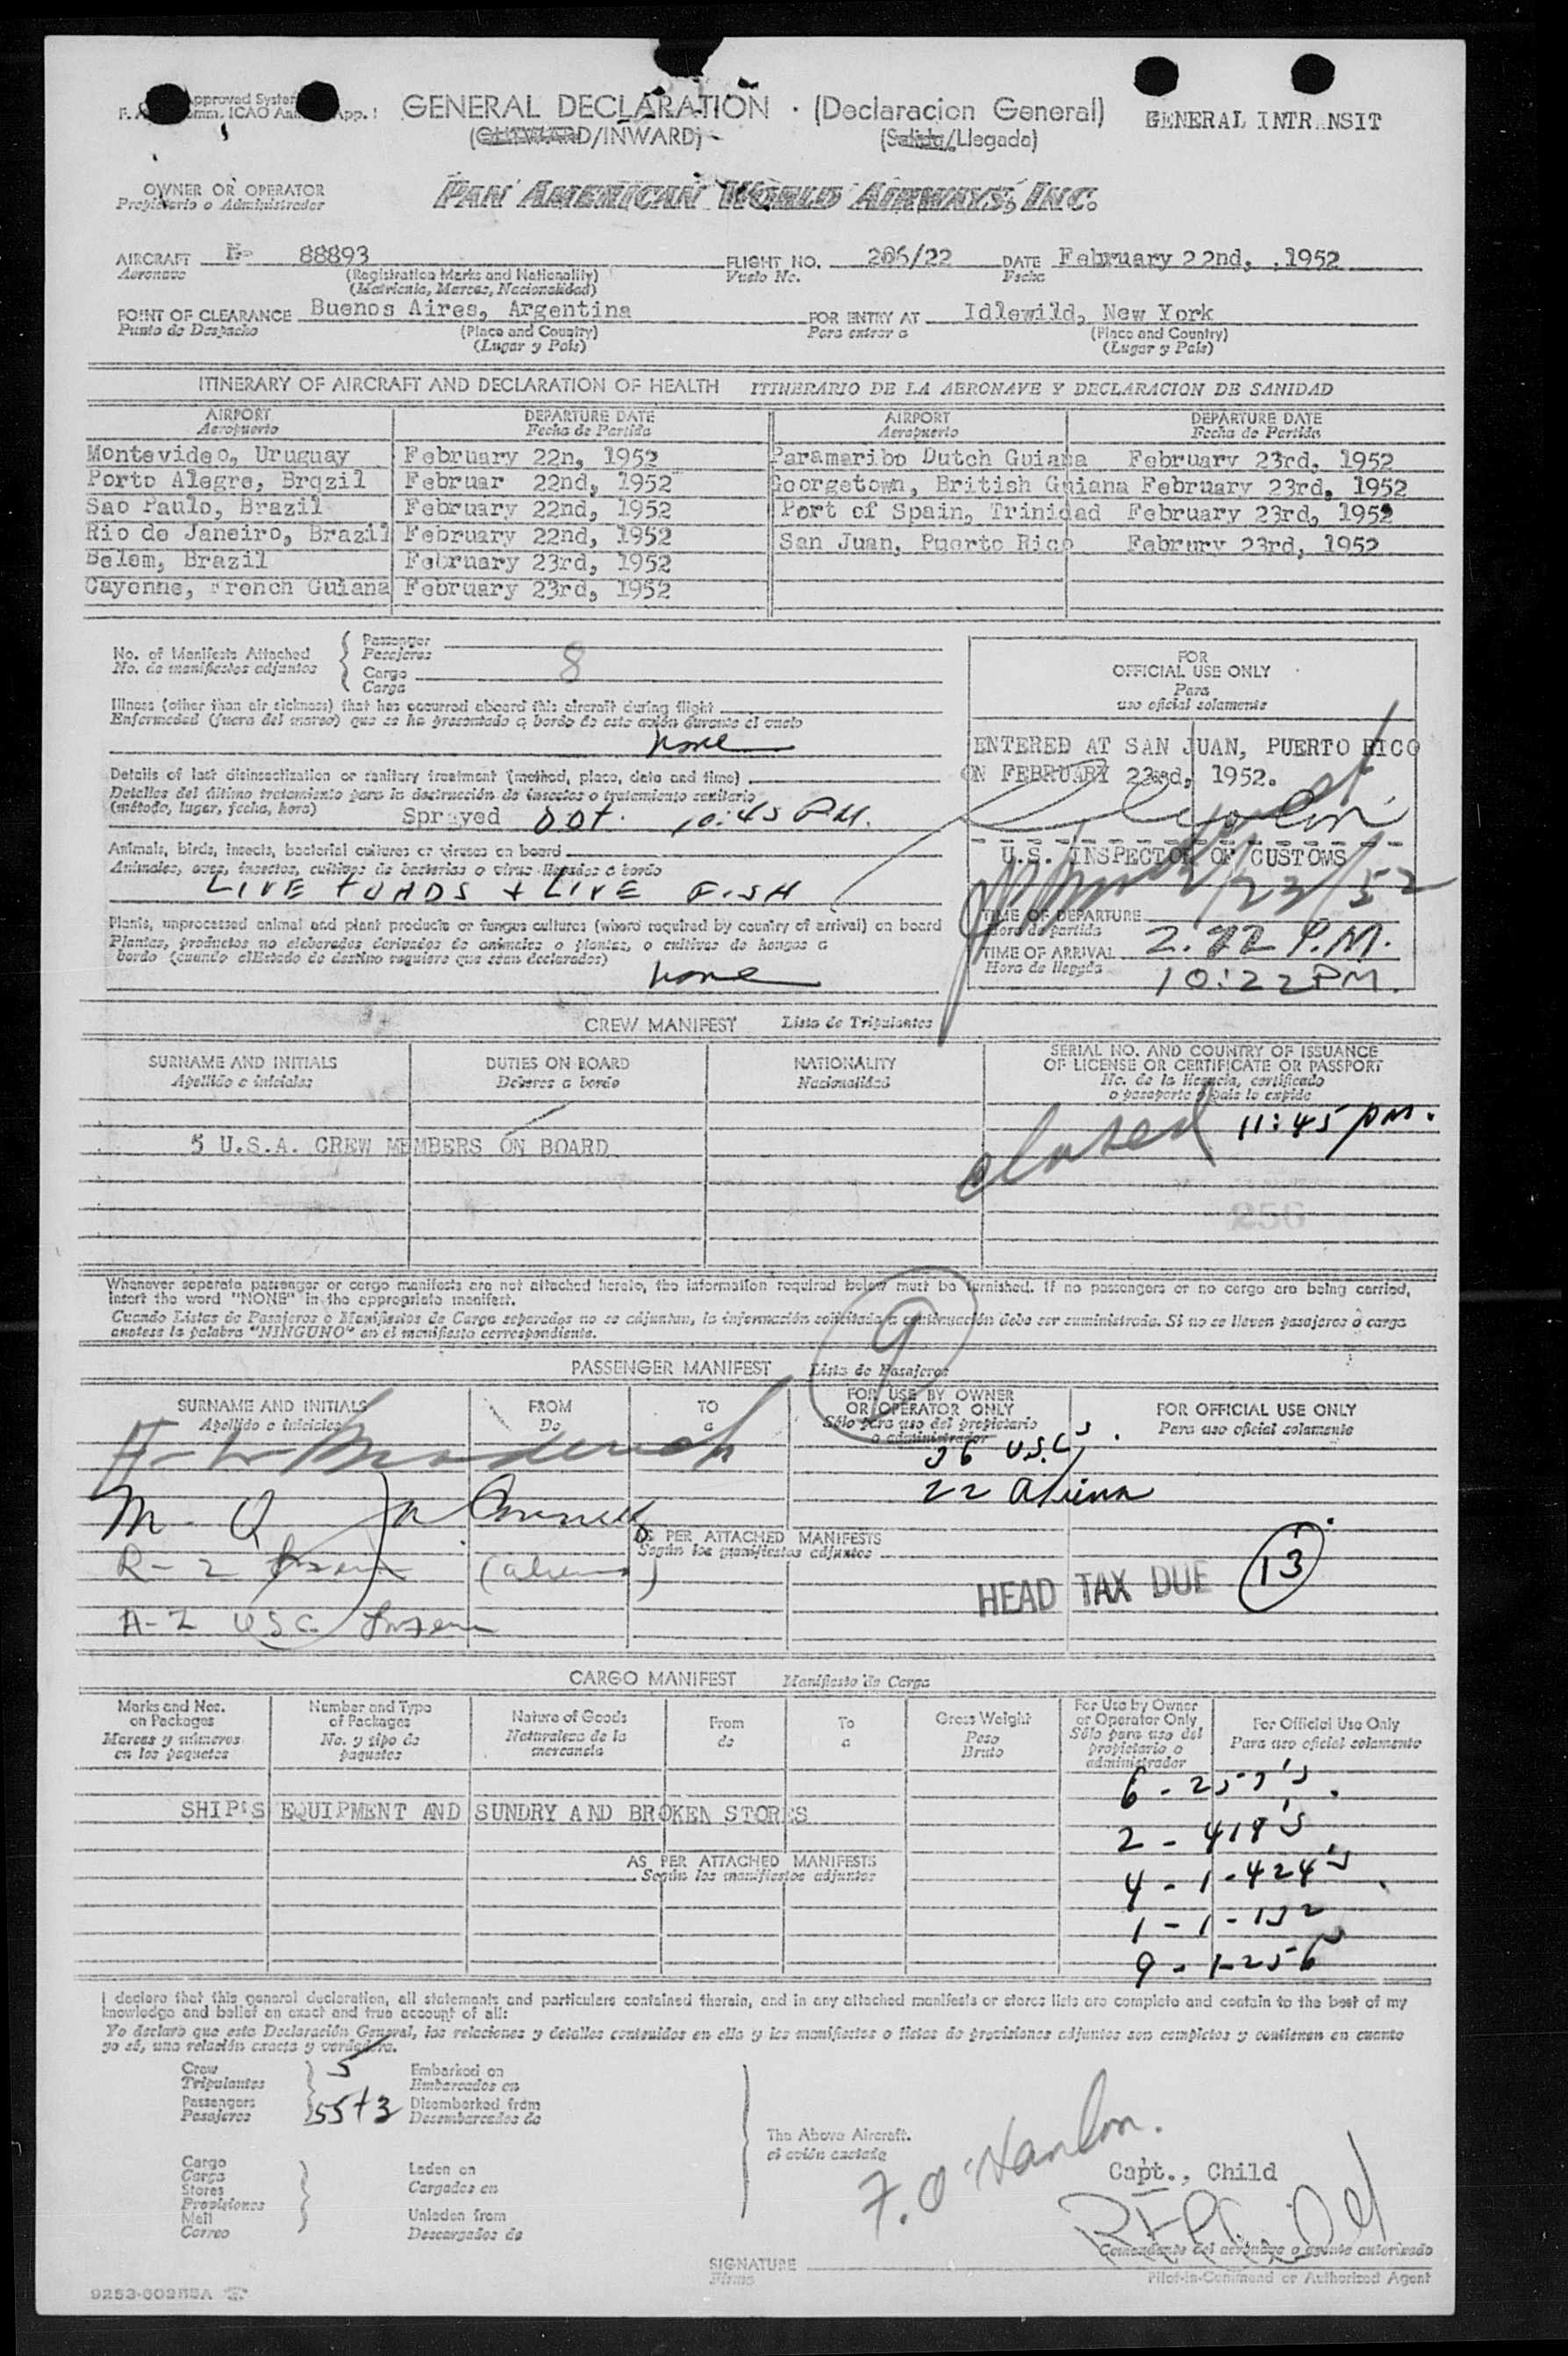 Approved System
F. A. Comm. ICAO App. 1
GENERAL DECLARATION · (Declaracion General)
GENERAL INTR NSIT
(OUTWARD/INWARD)
(Salida/Llegada)
OWNER OR OPERATOR
Propietario o Administrador
PAN AMERICAN WORLD AIRWAYS, INC.
AIRCRAFT N- 88893 FLIGHT NO. 206/22 DATE February 22nd, ,1952
Aeronave (Registration Marks and Nationality) Vuelo No. Fecha
(Matricula, Marcas, Nacionalidad)
POINT OF CLEARANCE Buenos Aires, Argentina FOR ENTRY AT Idlewild, New York
Punto de Despacho (Place and Country) Para entrar a (Place and Country)
(Lugar y Pais) (Lugar y Pais)
ITINERARY OF AIRCRAFT AND DECLARATION OF HEALTH ITINERARIO DE LA AERONAVE Y DECLARACION DE SANIDAD
AIRPORT DEPARTURE DATE AIRPORT DEPARTURE DATE
Aeropuerto Fecha de Partida Aeropuerto Fecha de Partida
Montevideo, Uruguay February 22n, 1952 Paramaribo Dutch Guiana February 23rd, 1952
Porto Alegre, Brqzil Februar 22nd, 1952 Georgetown, British Guiana February 23rd, 1952
Sao Paulo, Brazil February 22nd, 1952 Port of Spain, Trinidad February 23rd, 1952
Rio de Janeiro, Brazil February 22nd, 1952 San Juan, Puerto Rico Februry 23rd, 1952
Belem, Brazil February 23rd, 1952
Cayenne, French Guiana February 23rd, 1952
No. of Manifests Attached
No. de manifiestos adjuntos
Passenger
Pasajeros
8
Cargo
Carga
Illness (other than air sickness) that has occurred aboard this aircraft during flight
Enfermedad (fuera del mareo) que se ha presentado a bordo de este avión durante el vuelo
none
Details of last disinsectization or sanitary treatment (method, place, date and time)
Detalles del último tratamiento para la destrucción de insectos o tratamiento sanitario
(método, lugar, fecha, hora)
Sprayed DDT. 10:45 PM.
Animals, birds, insects, bacterial cultures or viruses on board
Animales, aves, insectos, cultivos de bacterias o virus llevados a bordo
LIVE TOADS + LIVE FISH
Plants, unprocessed animal and plant products or fungus cultures (where required by country of arrival) on board
Plantas, productos no elaborados derivados de animales o plantas, o cultivos de hongos a
bordo (cuando el Estado de destino requiere que sean declarados)
none
FOR
OFFICIAL USE ONLY
Para
uso oficial solamente
ENTERED AT SAN JUAN, PUERTO RICO
ON FEBRUARY 23rd, 1952.
U.S. INSPECTOR OF CUSTOMS
2/23/52
TIME OF DEPARTURE
Hora de partida
2:22 P.M.
TIME OF ARRIVAL
Hora de llegada
10:22 PM.
CREW MANIFEST Lista de Tripulantes
SURNAME AND INITIALS DUTIES ON BOARD NATIONALITY SERIAL NO. AND COUNTRY OF ISSUANCE
OF LICENSE OR CERTIFICATE OR PASSPORT
Apellido e iniciales Deberes a bordo Nacionalidad No. de la licencia, certificado
o pasaporte o pais lo expide
closed 11:45 pm.
5 U.S.A. CREW MEMBERS ON BOARD
256
Whenever separate passenger or cargo manifests are not attached hereto, the information required below must be furnished. If no passengers or no cargo are being carried,
insert the word "NONE" in the appropriate manifest.
Cuando Listas de Pasajeros o Manifiestos de Carga separados no se adjuntan, la información solicitada a continuación debe ser suministrada. Si no se llevan pasajeros o carga
anotese la palabra "NINGUNO" en el manifiesto correspondiente.
9
PASSENGER MANIFEST Lista de Pasajeros
SURNAME AND INITIALS FROM TO FOR USE BY OWNER
OR OPERATOR ONLY FOR OFFICIAL USE ONLY
Apellido e iniciales De a Sólo para uso del propietario
o administrador Para uso oficial solamente
36 USC's
22 aliens
AS PER ATTACHED MANIFESTS
Según los manifiestos adjuntos
R-2 (aliens)
HEAD TAX DUE 13
A-2 USC
CARGO MANIFEST Manifiesto de Carga
Marks and Nos.
on Packages
Marcas y números
en los paquetes
Number and Type
of Packages
No. y tipo de
paquetes
Nature of Goods
Naturaleza de la
mercancia
From
de
To
a
Gross Weight
Peso
Bruto
For Use by Owner
or Operator Only
Sólo para uso del
propietario o
administrador
For Official Use Only
Para uso oficial solamente
6 - 257's
SHIP'S EQUIPMENT AND SUNDRY AND BROKEN STORES
2 - 419's
AS PER ATTACHED MANIFESTS
Según los manifiestos adjuntos
4 - 1-424's
1 - 1-132
9 - 1-256
I declare that this general declaration, all statements and particulars contained therein, and in any attached manifests or stores lists are complete and contain to the best of my
knowledge and belief an exact and true account of all:
Yo declaro que esta Declaración General, las relaciones y detalles contenidos en ella y los manifiestos o listas de provisiones adjuntos son completos y contienen en cuanto
yo sé, una relación exacta y verdadera.
Crew
Tripulantes
5
Embarked on
Embarcados en
Passengers
Pasajeros
55+3
Disembarked from
Desembarcados de
The Above Aircraft.
el avión anotado
Cargo
Carga
Stores
Provisiones
Mail
Correo
Laden on
Cargados en
Unladen from
Descargados de
F. O'Hanlon.
Capt., Child
Comandante del aeronave o agente autorizado
SIGNATURE
Firma
Pilot-in-Command or Authorized Agent